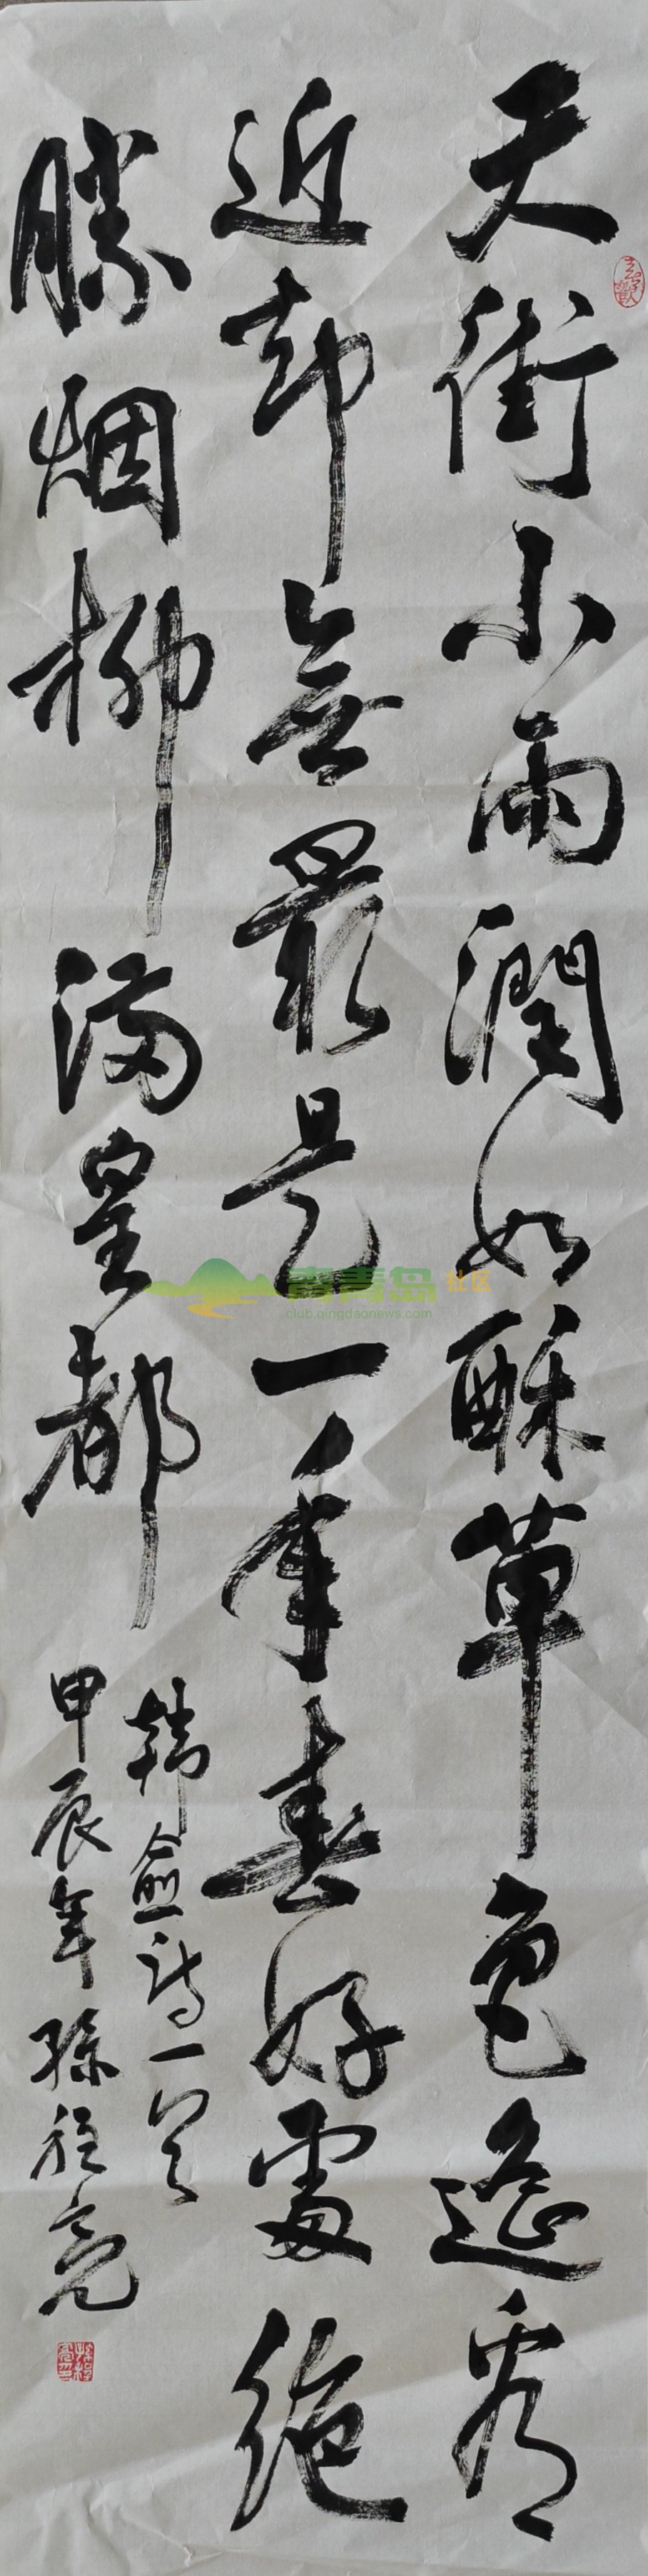 天街小雨潤如酥草色遙看
近却無最是一年春好處絶
勝烟柳滿皇都
韓愈詩一首
甲辰年孫亮
青青岛社区
club.qingdaonews.com